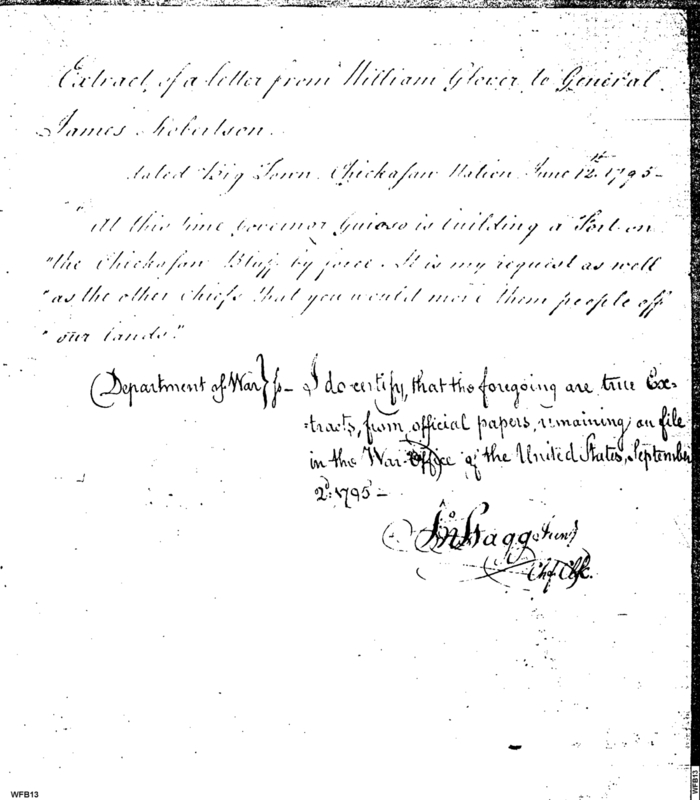 Extract of a letter from William Glover to General
James Robertson.
dated Big Town Chickasaw Nation June 12th 1795 –
"At this time Governor Guioso is building a Fort on
"the Chickasaw Bluff by force. It is my request as well
"as the other Chiefs that you would move them people off
"our lands."
(Department of War} ss – I do certify, that the foregoing are true Ex=
=tracts, from official papers, remaining on file
in the War-Office of the United States, September
2d. 1795 –
Jno Stagg Junr
Chf. Clk.
WFB13
WFB13